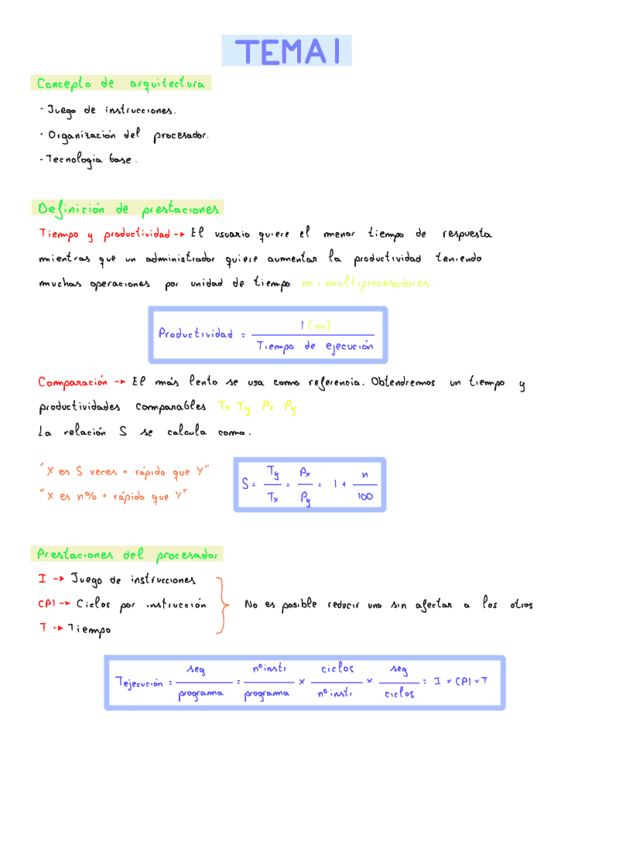 TEMA 1
Concepto de arquitectura
- Juego de instrucciones.
- Organización del procesador.
- Tecnología base.
Definición de prestaciones
Tiempo y productividad → El usuario quiere el menor tiempo de respuesta
mientras que un administrador quiere aumentar la productividad teniendo
muchas operaciones por unidad de tiempo m: multiprocesadores
Productividad = 1 (m) / Tiempo de ejecución
Comparación → El más lento se usa como referencia. Obtendremos un tiempo y
productividades comparables Tx Ty Px Py
La relación S se calcula como.
"X es S veces + rápido que Y"
"X es n% + rápido que Y"
S = Ty / Tx = Px / Py = 1 + n / 100
Prestaciones del procesador
I → Juego de instrucciones
CPI → Ciclos por instrucción
T → Tiempo
No es posible reducir uno sin afectar a los otros
Tejecución = seg / programa = nº instr / programa × ciclos / nº instr × seg / ciclos = I × CPI × T